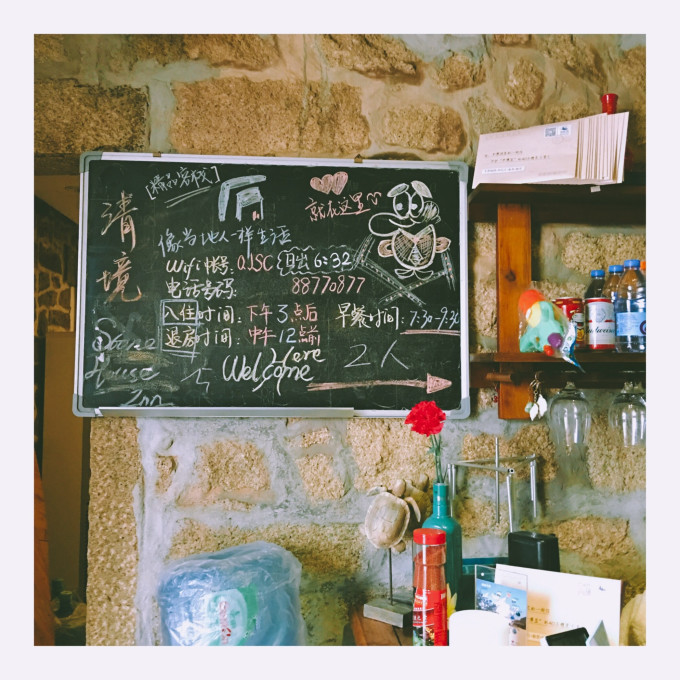 [精品客栈]
清境
就在这里
像当地人一样生活
Wifi帐号: QJSC
日出6:32
电话号码: 88770877
入住时间: 下午3点后
早餐时间: 7:30-9:30
退房时间: 中午12点前
2人
Welcome Here
Stone
House
Inn